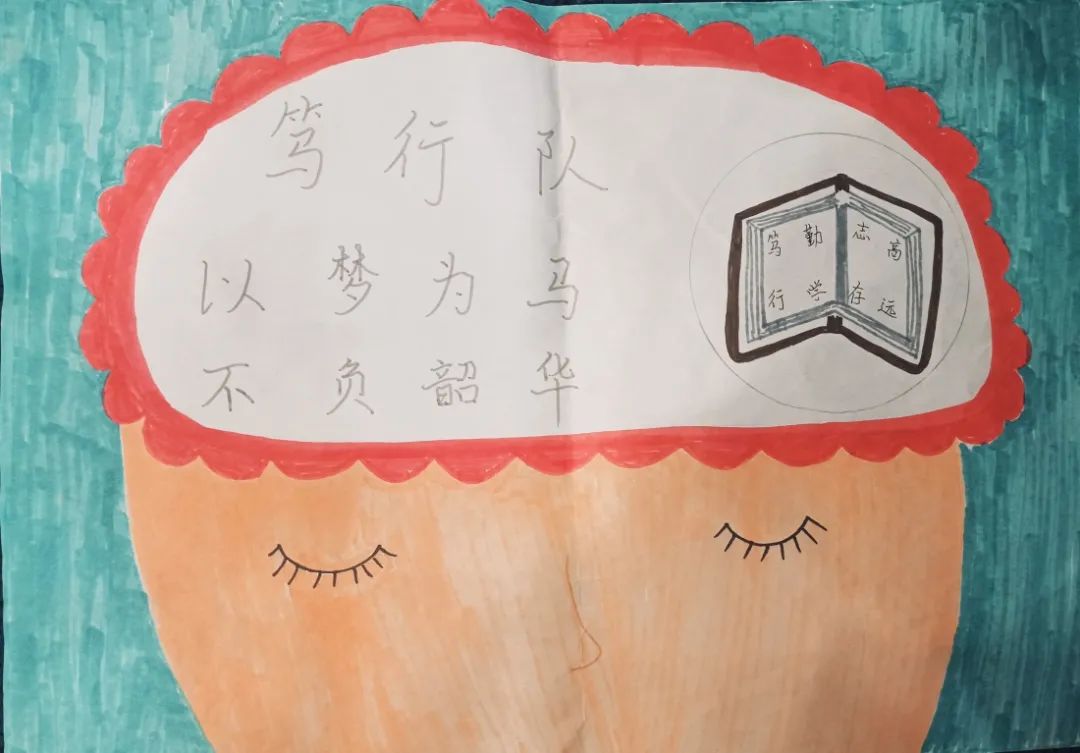 笃行队
以梦为马
不负韶华
笃行
勤学
志存
高远